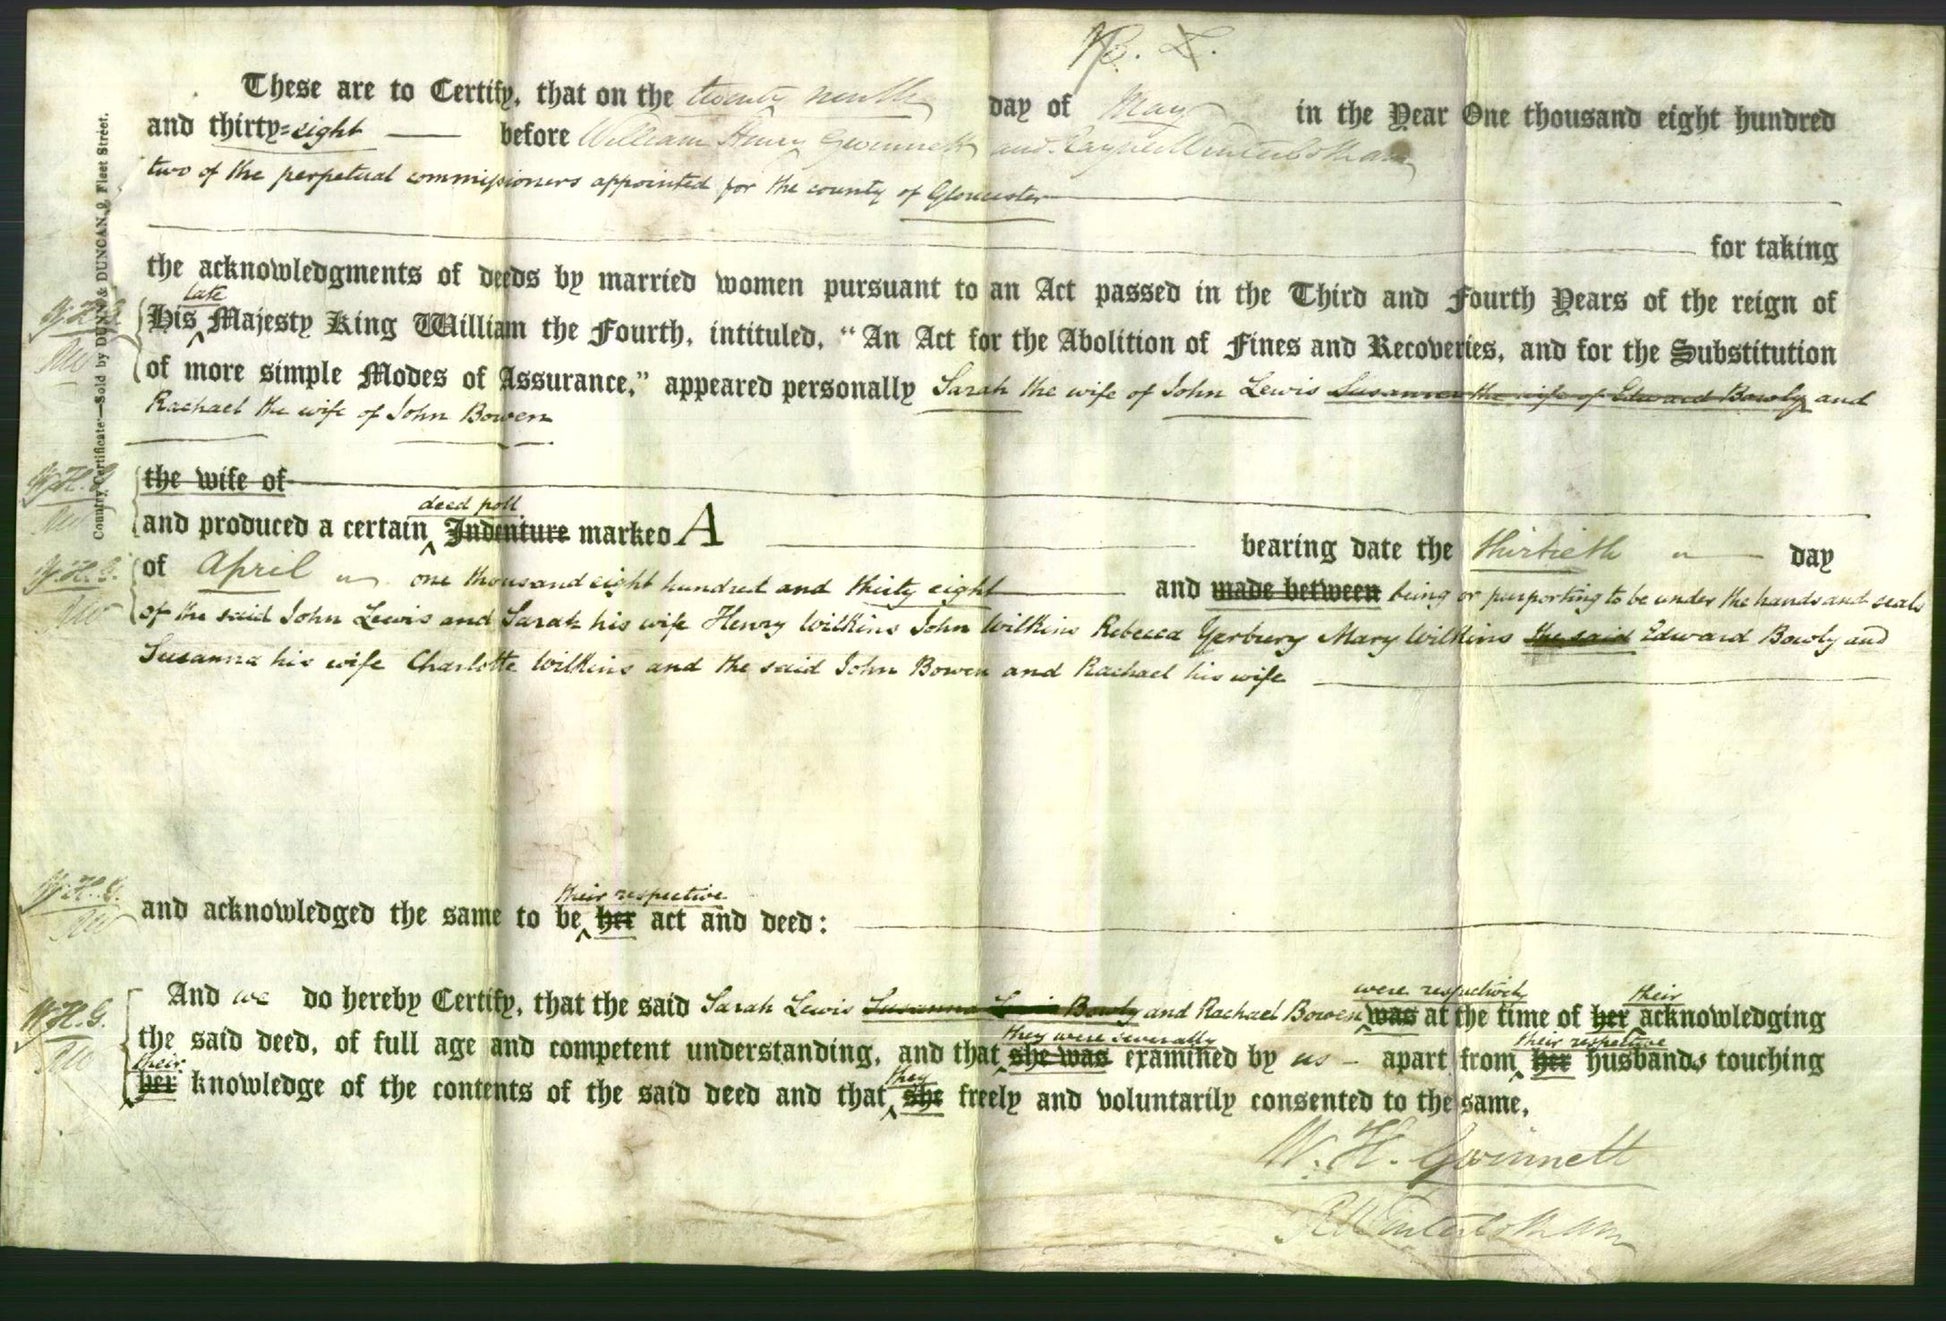 These are to Certify, that on the twenty ninth day of May in the Year One thousand eight hundred
and thirty=eight before William Henry Gwinnett and Rayner Winterbotham
two of the perpetual commissioners appointed for the county of Gloucester
for taking
the acknowledgments of deeds by married women pursuant to an Act passed in the Third and Fourth Years of the reign of
late
His Majesty King William the Fourth, intituled, "An Act for the Abolition of Fines and Recoveries, and for the Substitution
of more simple Modes of Assurance," appeared personally Sarah the wife of John Lewis Susanna the wife of Edward Bowly and
Rachael the wife of John Bowen
the wife of
deed poll
and produced a certain Indenture marked A bearing date the thirtieth day
of April one thousand eight hundred and thirty eight and made between being or purporting to be under the hands and seals
of the said John Lewis and Sarah his wife Henry Wilkins John Wilkins Rebecca Yerbury Mary Wilkins the said Edward Bowly and
Susanna his wife Charlotte Wilkins and the said John Bowen and Rachael his wife
their respective
and acknowledged the same to be her act and deed:
were respectively their
And we do hereby Certify, that the said Sarah Lewis Susanna Bowly and Rachael Bowen was at the time of her acknowledging
they were severally their respective
the said deed, of full age and competent understanding, and that she was examined by us apart from her husbands touching
their they
her knowledge of the contents of the said deed and that she freely and voluntarily consented to the same.
W. H. Gwinnett
R Winterbotham
W.H.G.
RW
W.H.G.
RW
W.H.G.
RW
W.H.G.
RW
W.H.G.
RW
Country Certificate—Sold by DUNN & DUNCAN, 9, Fleet Street.